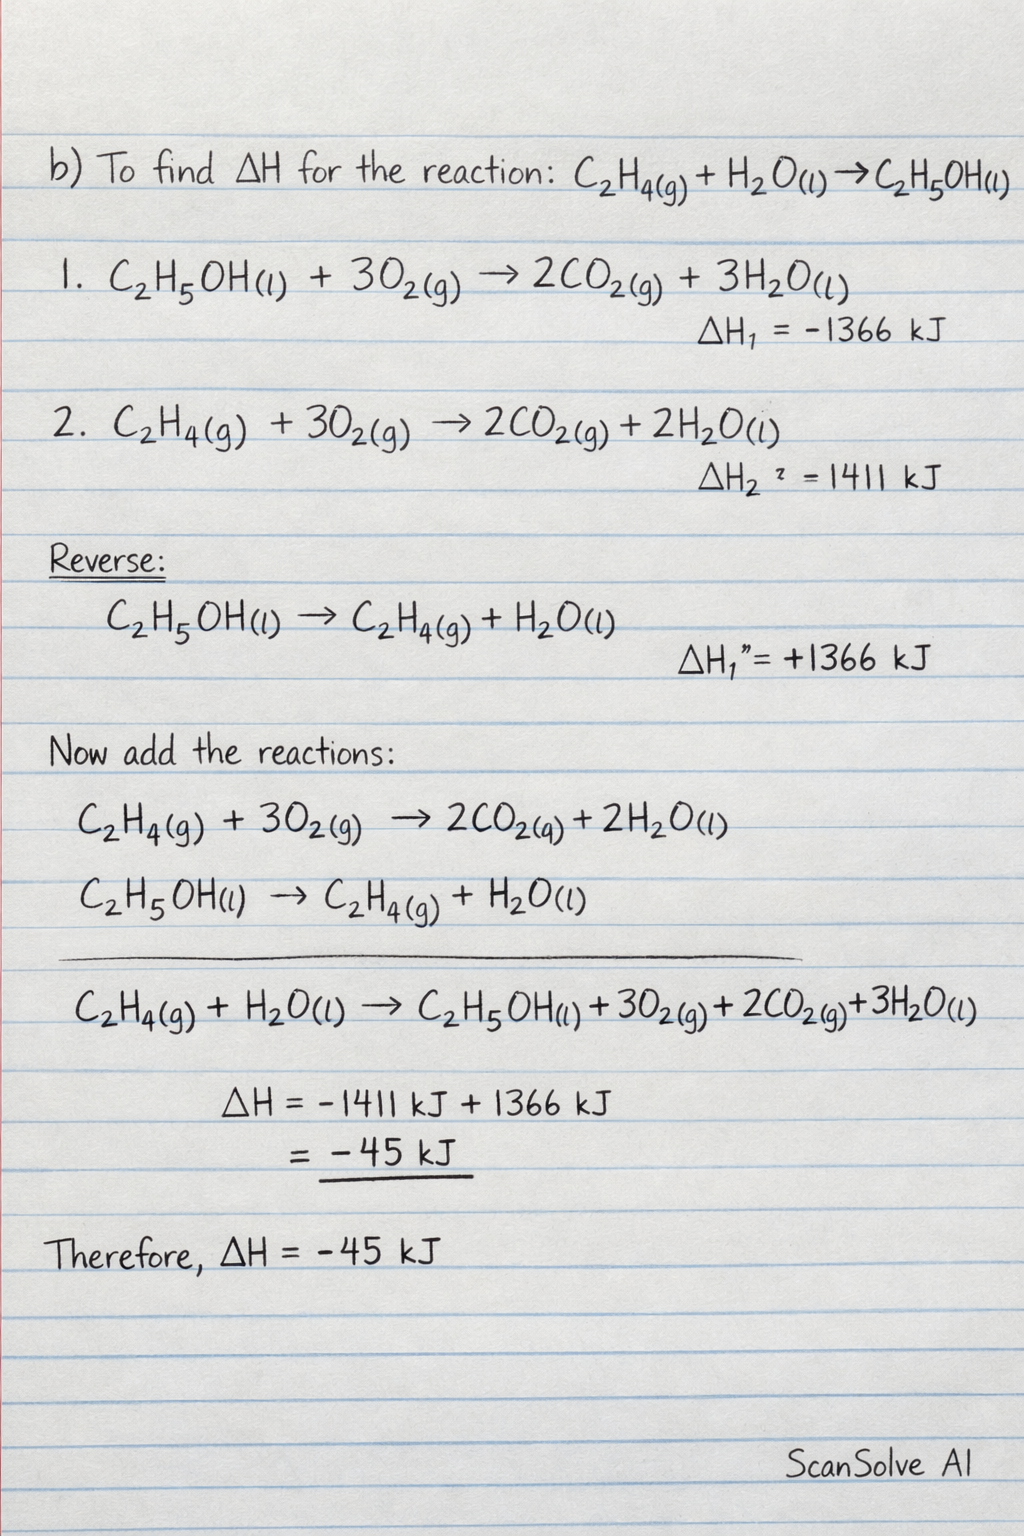 b) To find ΔH for the reaction: C₂H₄(g) + H₂O(l) → C₂H₅OH(l)
1. C₂H₅OH(l) + 3O₂(g) → 2CO₂(g) + 3H₂O(l)
ΔH₁ = -1366 kJ
2. C₂H₄(g) + 3O₂(g) → 2CO₂(g) + 2H₂O(l)
ΔH₂ ² = 1411 kJ
Reverse:
C₂H₅OH(l) → C₂H₄(g) + H₂O(l)
ΔH₁" = +1366 kJ
Now add the reactions:
C₂H₄(g) + 3O₂(g) → 2CO₂(q) + 2H₂O(l)
C₂H₅OH(l) → C₂H₄(g) + H₂O(l)
C₂H₄(g) + H₂O(l) → C₂H₅OH(l) + 3O₂(g) + 2CO₂(g) + 3H₂O(l)
ΔH = -1411 kJ + 1366 kJ
= -45 kJ
Therefore, ΔH = -45 kJ
ScanSolve AI